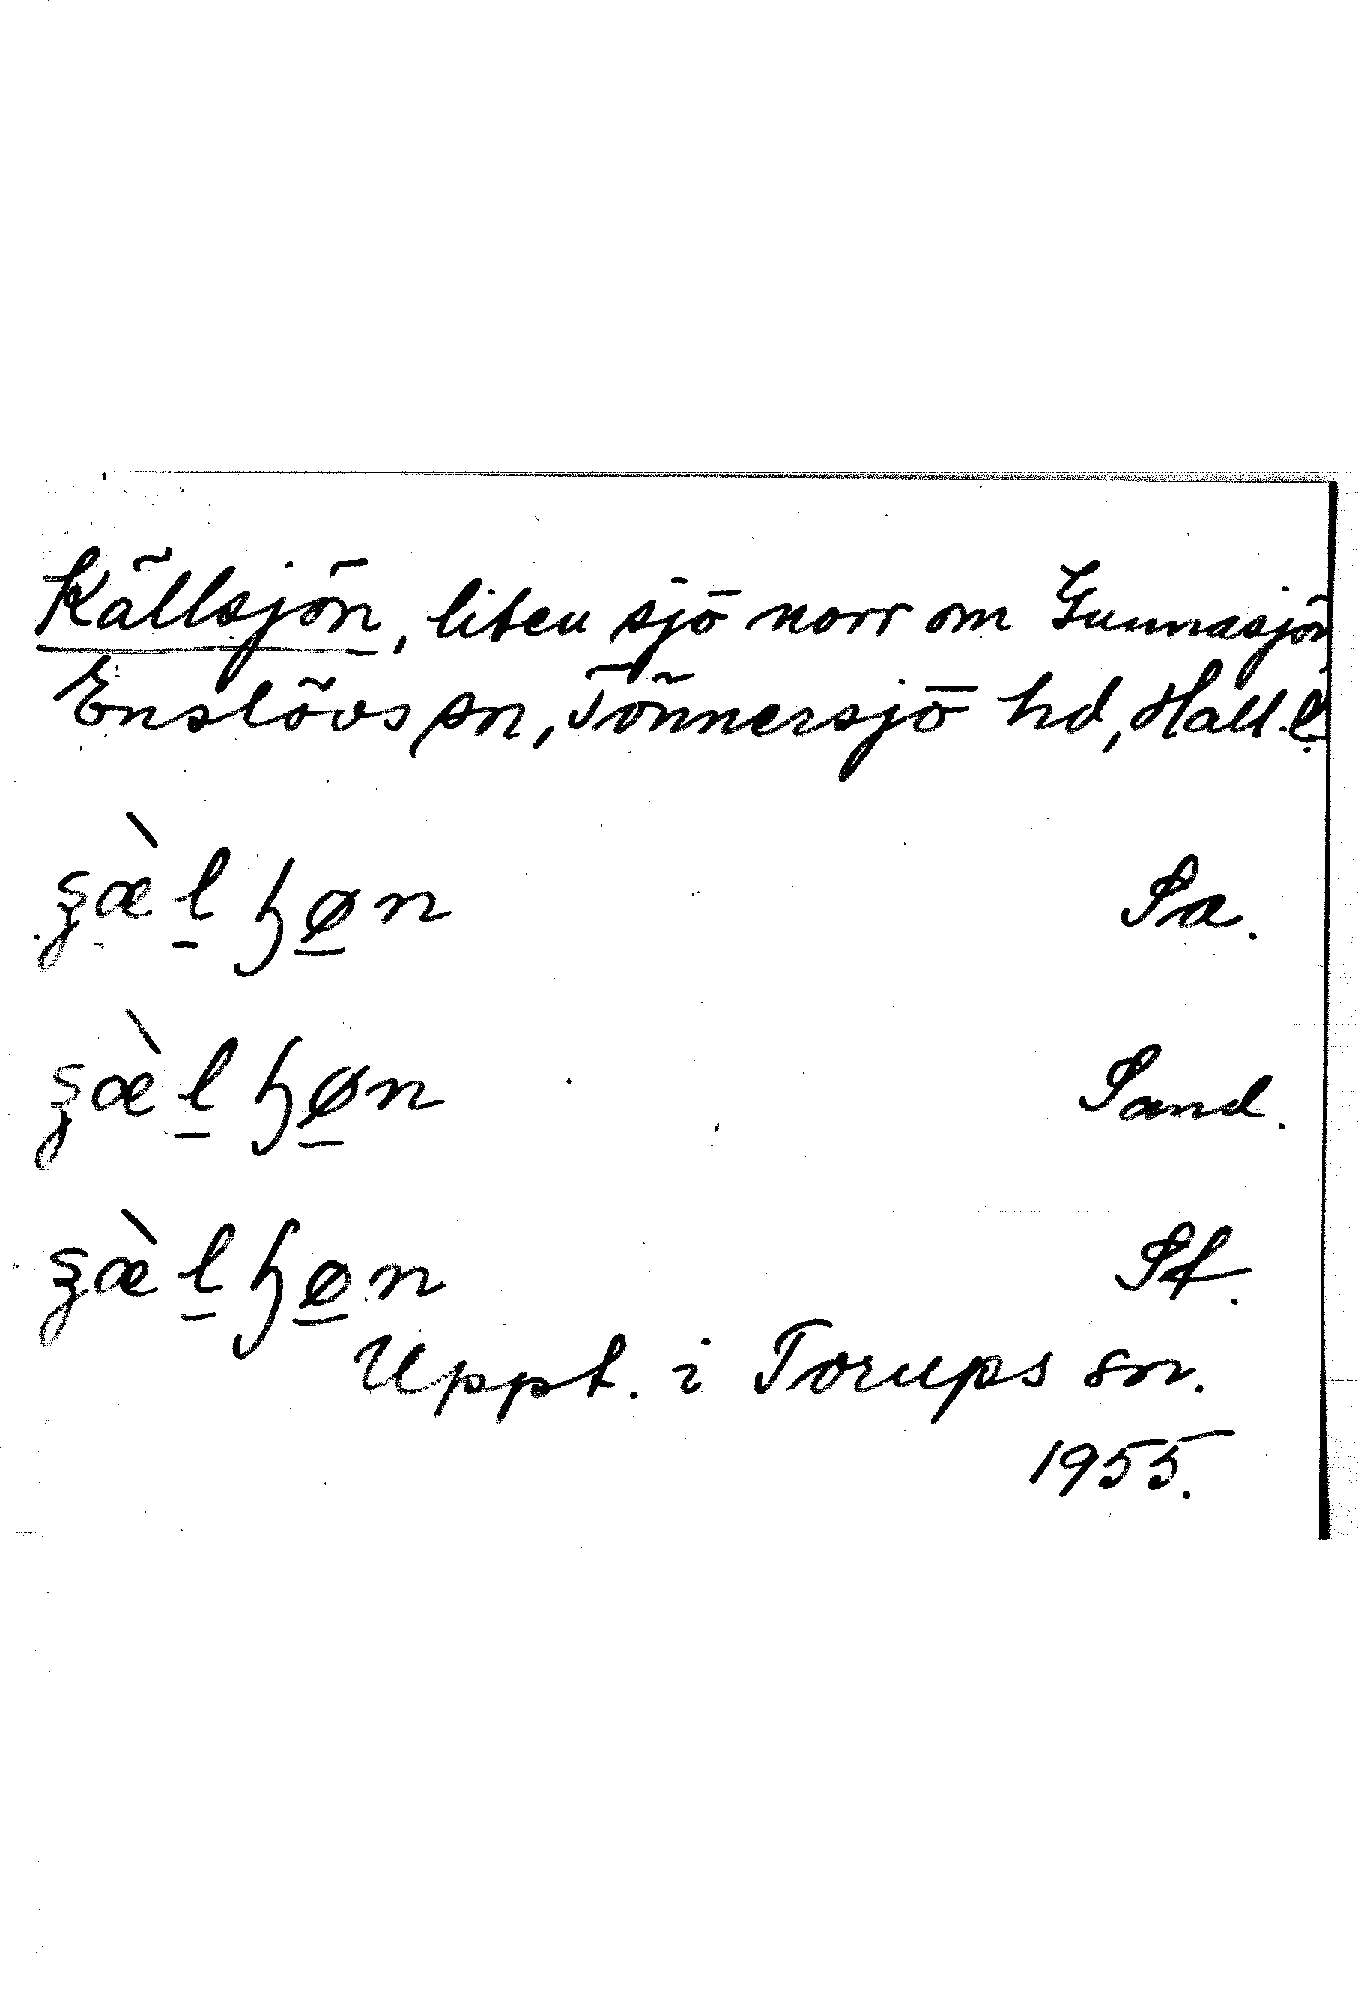 Källsjön, liten sjö norr om Gunnasjön
Enslövs sn, Tönnersjö hd, Hall. l.
Sa.
Sand.
Sf.
Uppt. i Torups sn.
1955.